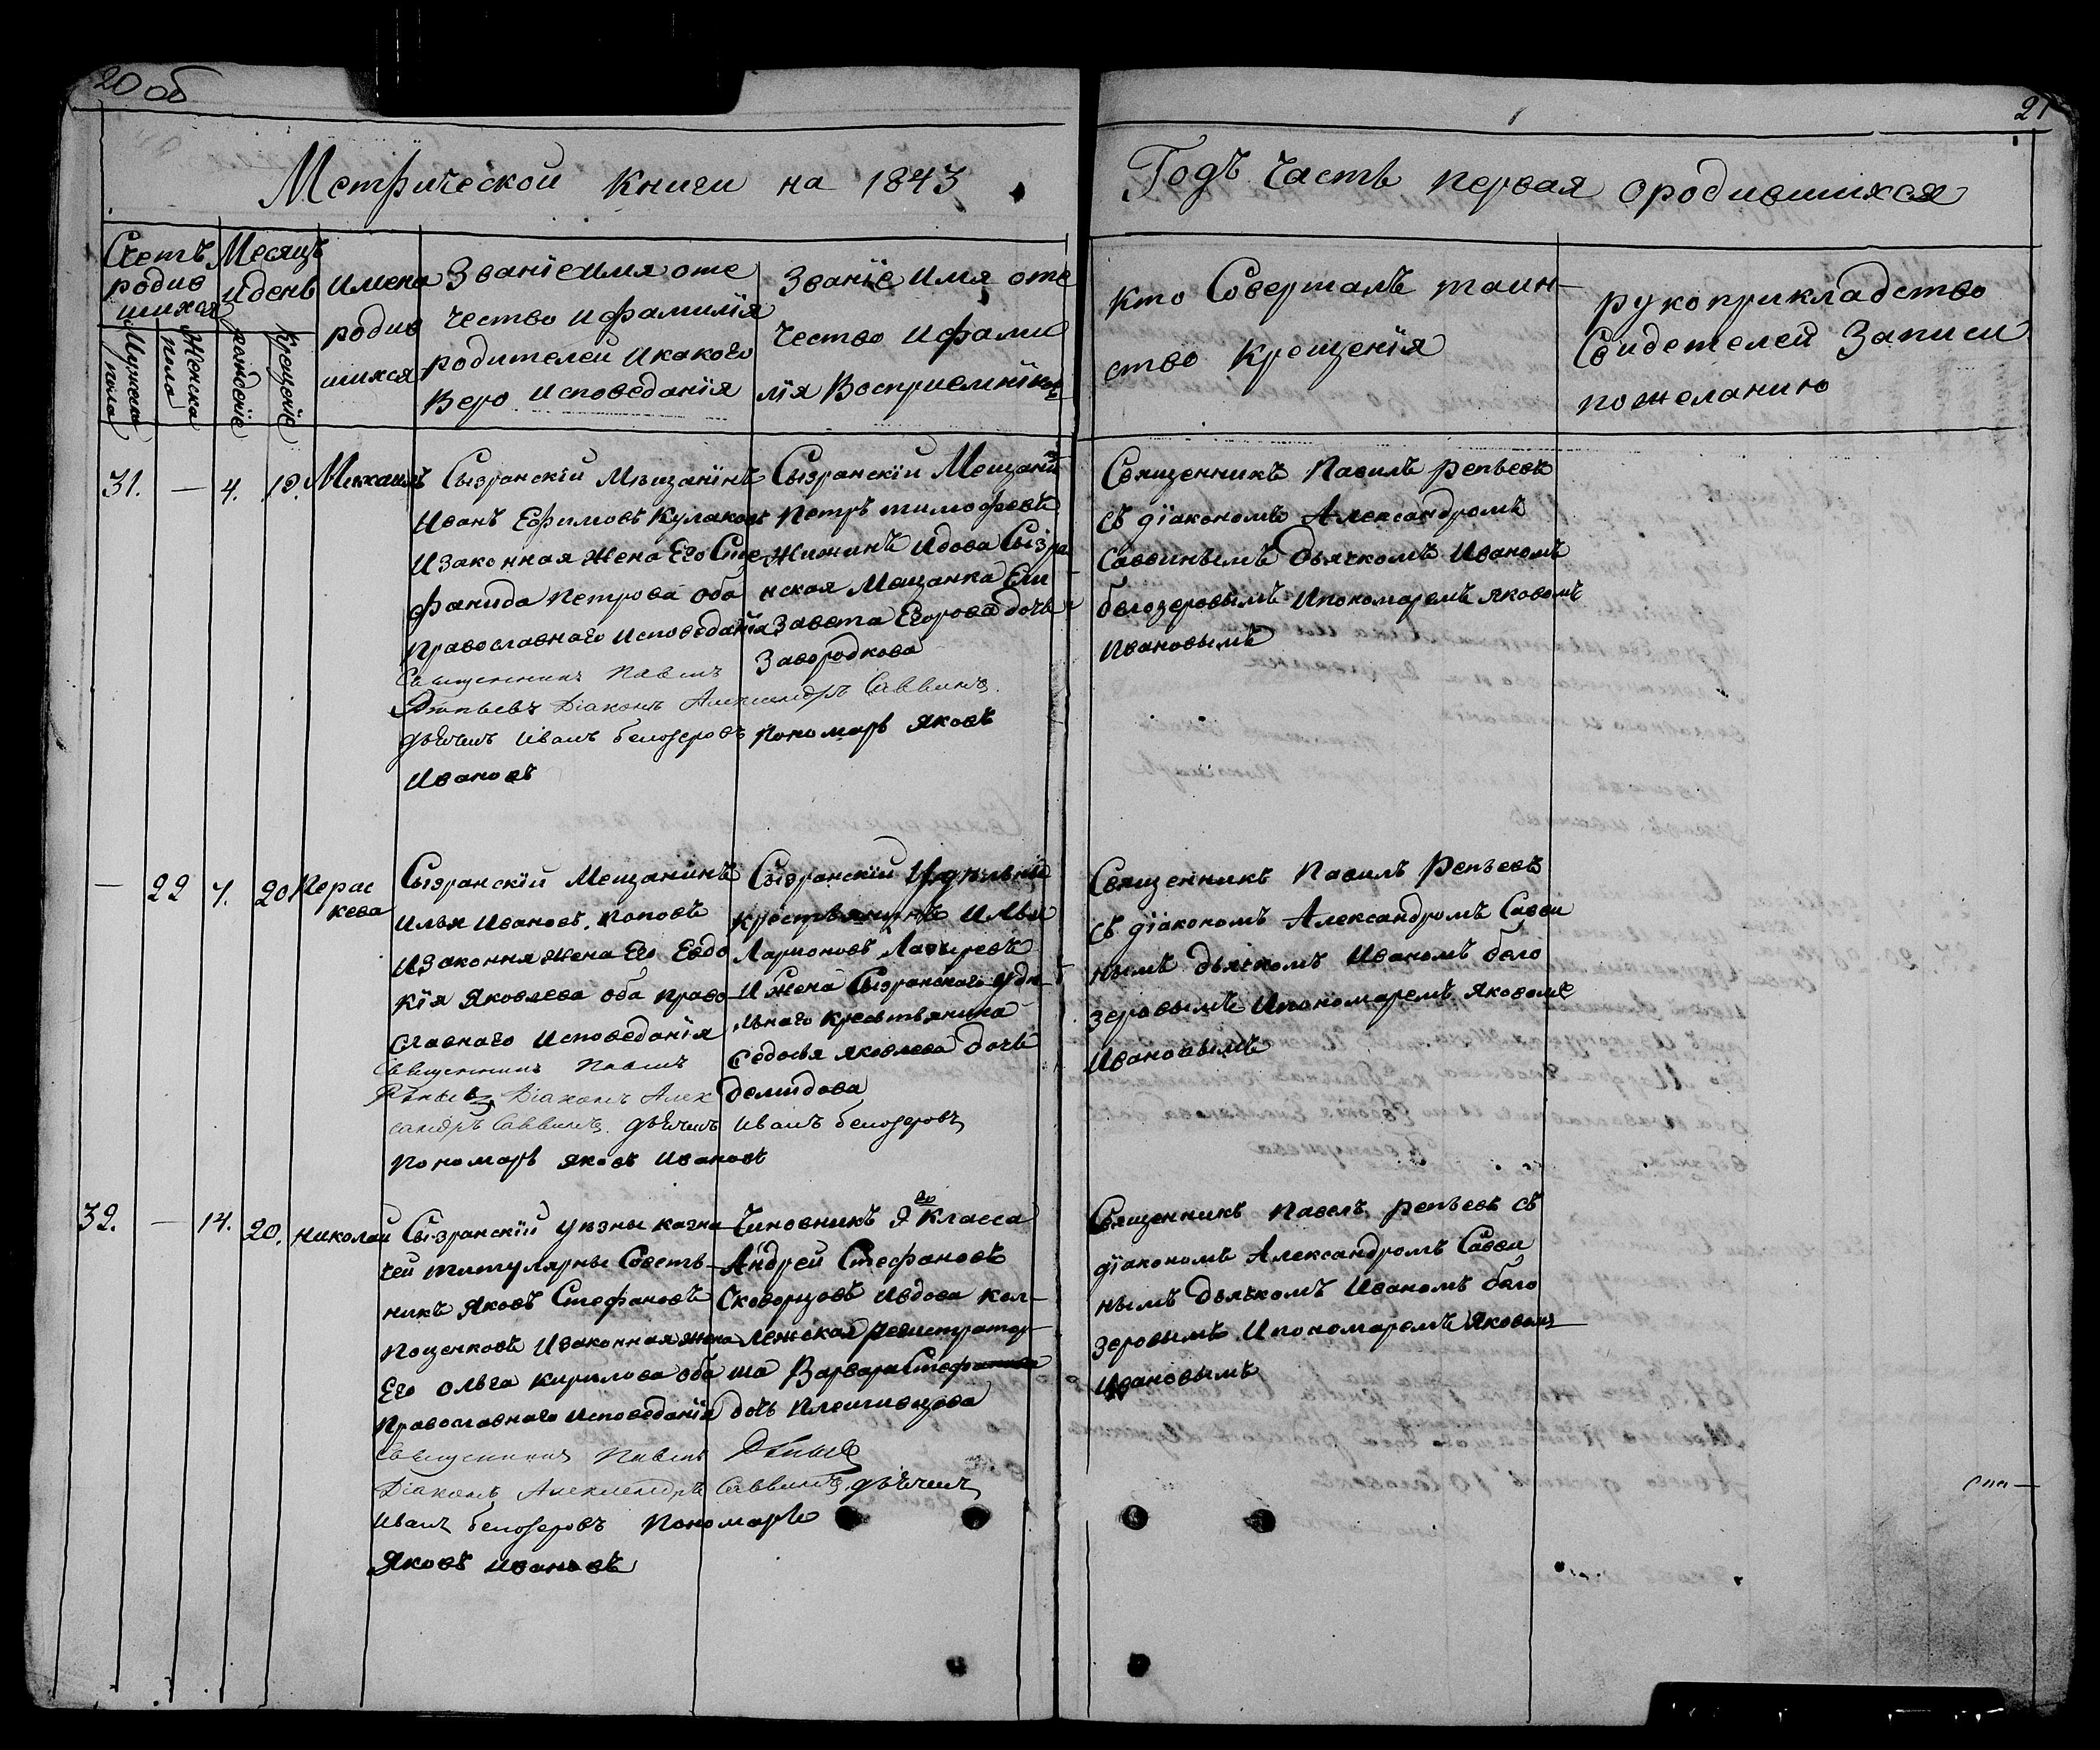 20 об
21
Метрической книги на 1843
Годъ Часть первая ородившихся
Счетъ
родив
шихся
Мужска
пола
Женска
пола
Месяцъ
и день
рождение
крещение
имена
родив
шихся
Званїе имя оте
чество и фамилїя
родителей и какого
Веро исповеданїя
Званїе имя оте
чество и фами
лїя Восприемнїковъ
кто Совершалъ таин
ство крещенїя
рукоприкладство
Свидетелей Записи
пожеланию
31. — 4. 10. Михаилъ
Сызранскїй Мещанїнъ
Иванъ Ефимовъ Кулаковъ
и законная жена Его Сте
фанида петрова оба
православнаго исповеданїя
Священникъ Павелъ
Репьевъ Дїаконъ Александръ Саввинъ.
дьячекъ Иванъ белозеровъ пономарь яковъ
Ивановъ
Сызранскїй Мещанїнъ
Петръ тимофеевъ
Жижинъ и вдова Сызра
нская Мещанка Ели
завета Егорова дочь
Завородкова
Священникъ Павилъ репьевъ
съ дїакономъ Александромъ
Саввинымъ дьячкомъ Иваномъ
белозеровымъ и пономаремъ яковомъ
Ивановымъ
— 22 7. 20 Парас
кева
Сызранскїй Мещанинъ
Илья Ивановъ. Поповъ
и законня жена Его Евдо
кїя яковлева оба право
славнаго исповеданїя
Священникъ Павелъ
Репьевъ Дїаконъ Алек
сандръ Саввинъ. дьячекъ Иванъ белозеровъ
пономарь яковъ Ивановъ
Сызранскїй Удельный
крестьянинъ Илья
Ларионовъ Лазыревъ
и жена Сызранскаго уде
льнаго крестьянина
Федосья яковлева дочь
демидова
Священникъ Павилъ Репьевъ
съ дїакономъ Александромъ Савви
нымъ дьячкомъ Иваномъ бело
зеровымъ и пономаремъ яковомъ
Ивановымъ
32. — 14. 20. николай
Сызранскїй уѣзны казна
чей титулярны Советъ
никъ яковъ Стефановъ
Пощенковъ и законная жена
Его ольга кирилова оба
православнаго исповеданїя
Священникъ Павелъ Репьевъ
Дїаконъ Александръ Саввинъ. дьячекъ
Иванъ белозеровъ пономарь
яковъ Ивановъ
Чиновникъ 9го Класса
Андрей Стефановъ
Скворцовъ и вдова кол
лежская регистратор
ша Варвара Стефанова
дочь Плешивцова
Священникъ Павелъ репьевъ съ
дїакономъ Александромъ Савви
нымъ дьячкомъ Иваномъ бело
зеровымъ и пономаремъ яковомъ
Ивановымъ